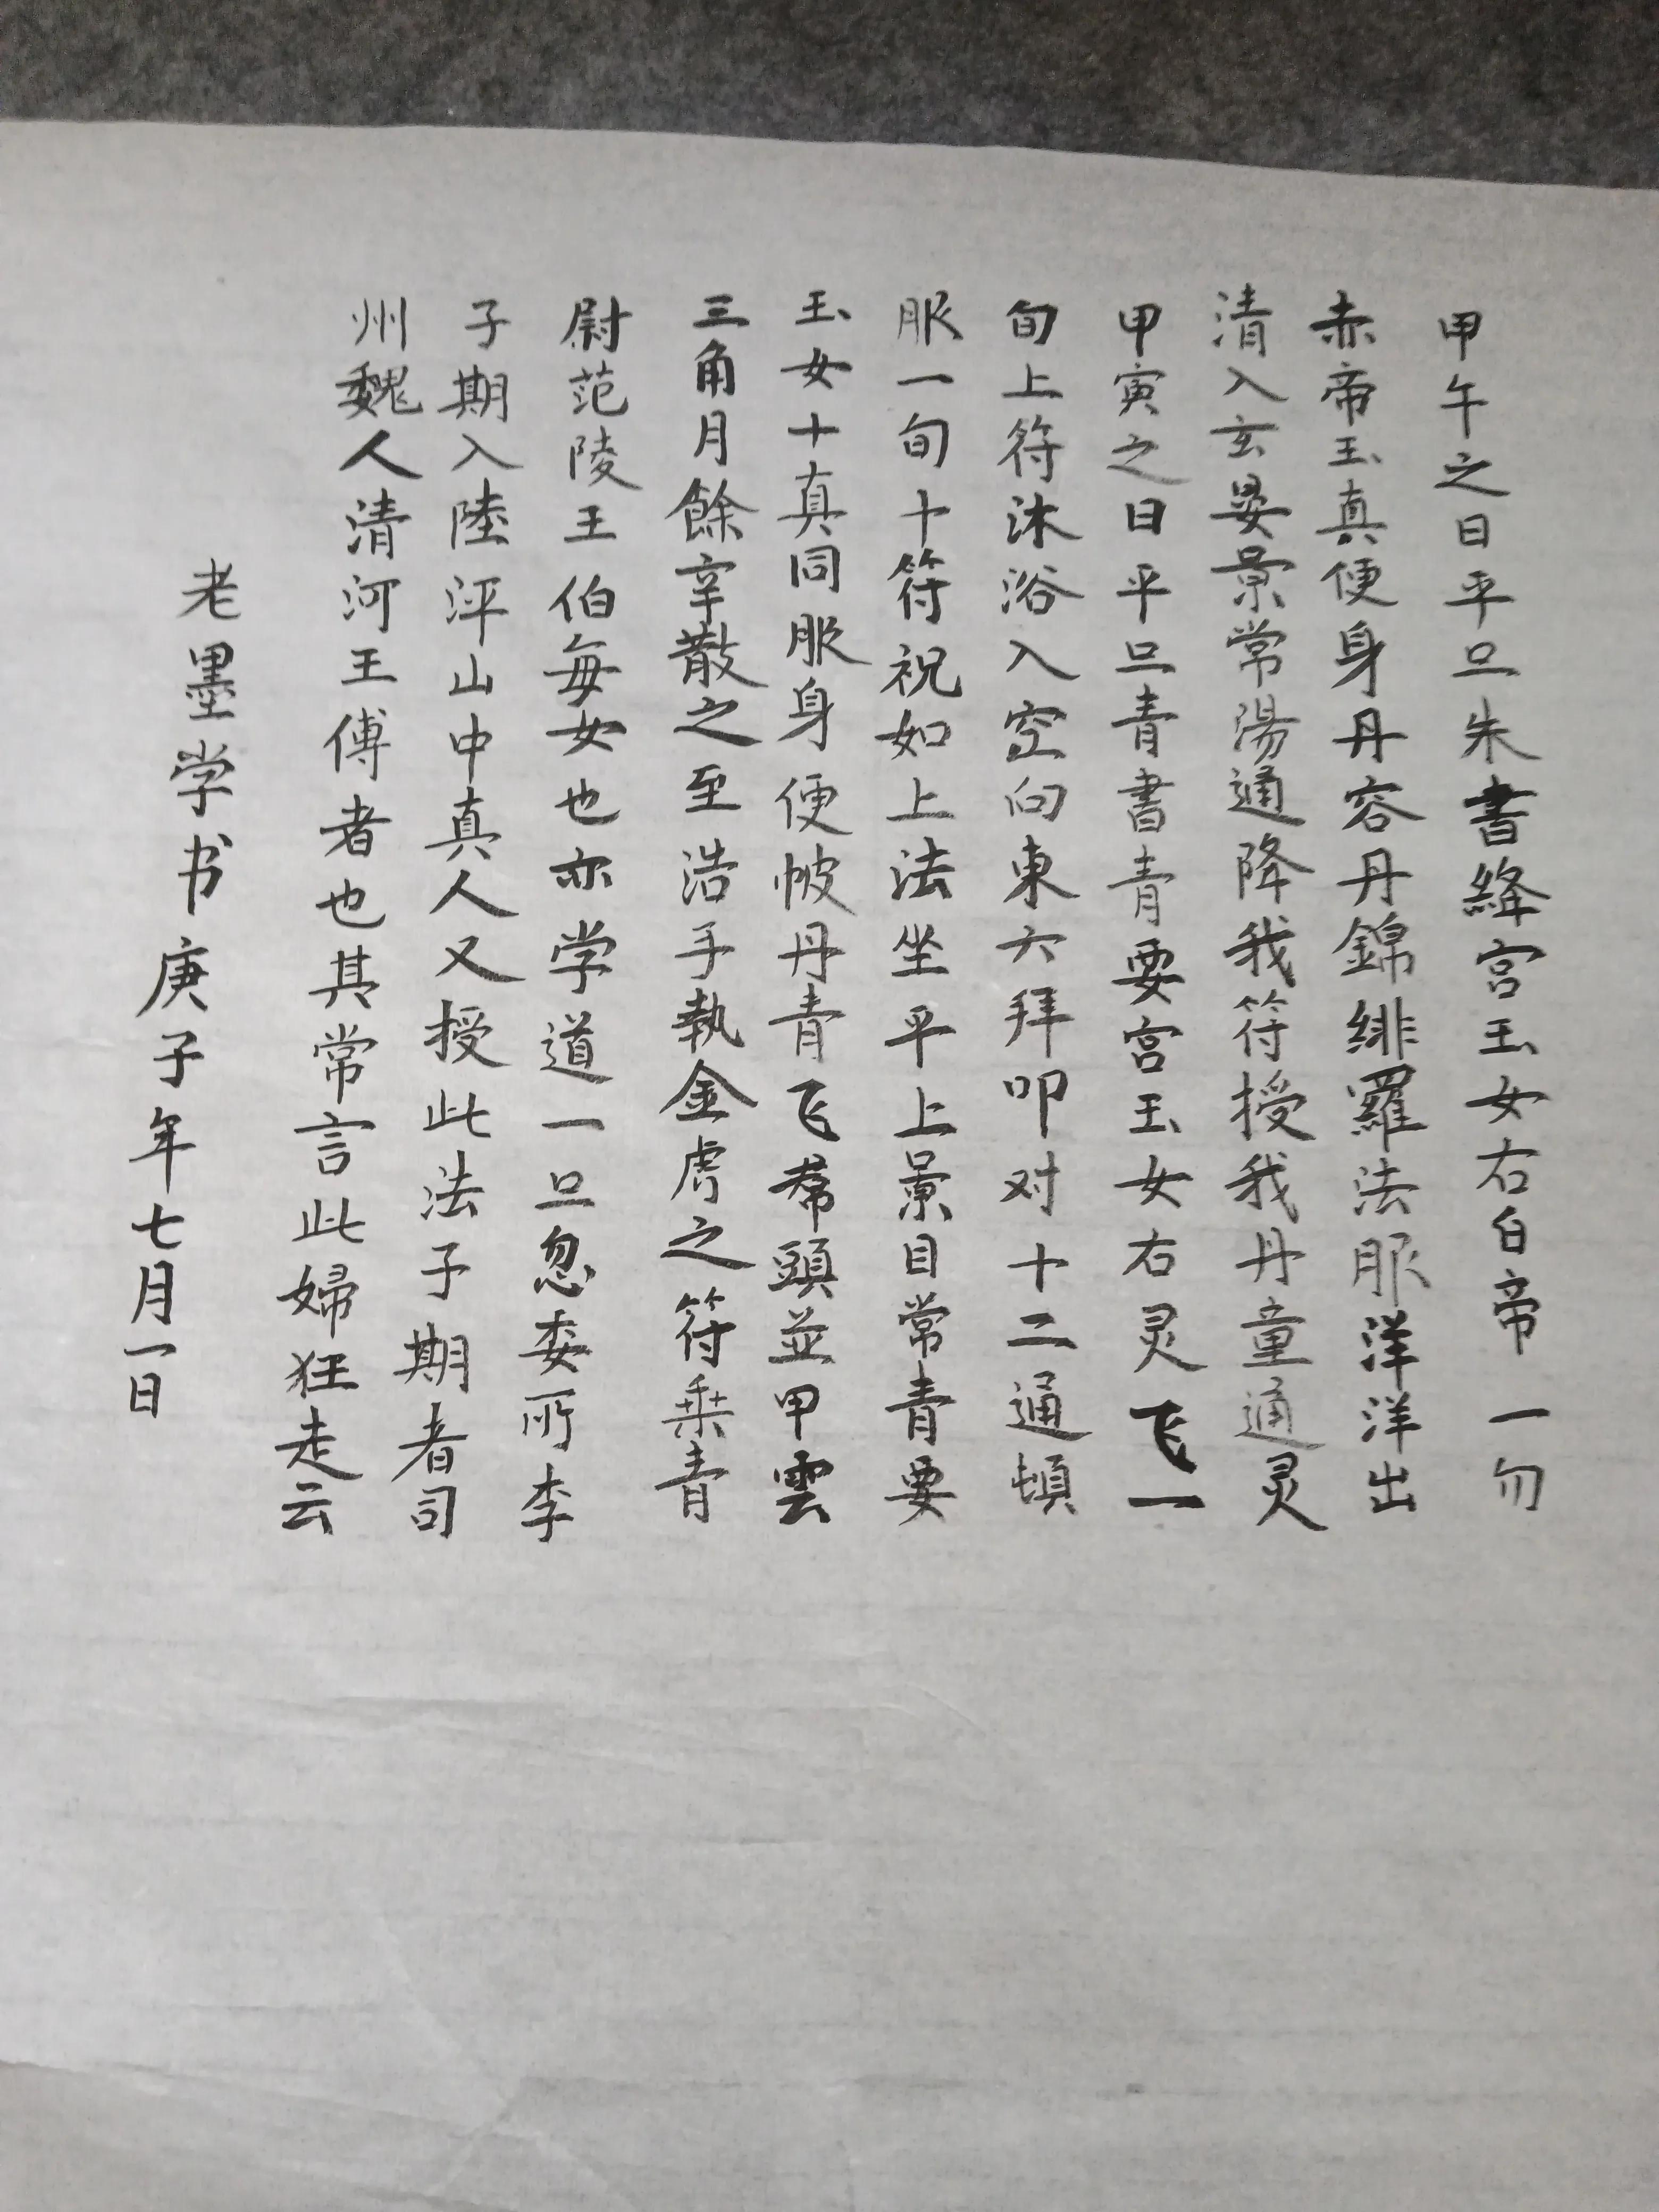 甲午之日平旦朱書絳宮玉女右白帝一勿
赤帝玉真便身丹容丹錦緋羅法服洋洋出
清入玄晏景常湯通降我符授我丹童通灵
甲寅之日平旦青書青要宮玉女右灵飞一
旬上符沐浴入空向東六拜叩对十二通頓
服一旬十符祝如上法坐平上景目常青要
玉女十真同服身便帔丹青飞帬頭並甲雲
三角月餘辛散之至浩手執金虎之符乗青
尉范陵王伯每女也亦学道一旦忽委所李
子期入陸泙山中真人又授此法子期者司
州魏人清河王傅者也其常言此婦狂走云
老墨学书庚子年七月一日